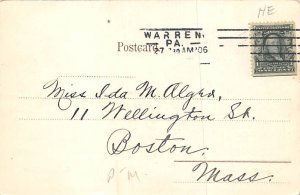 HE
WARREN,
PA.
Postcard.
27 AM '06
Miss Ida M. Alger,
11 Wellington St.
Boston.
Mass.
P M.